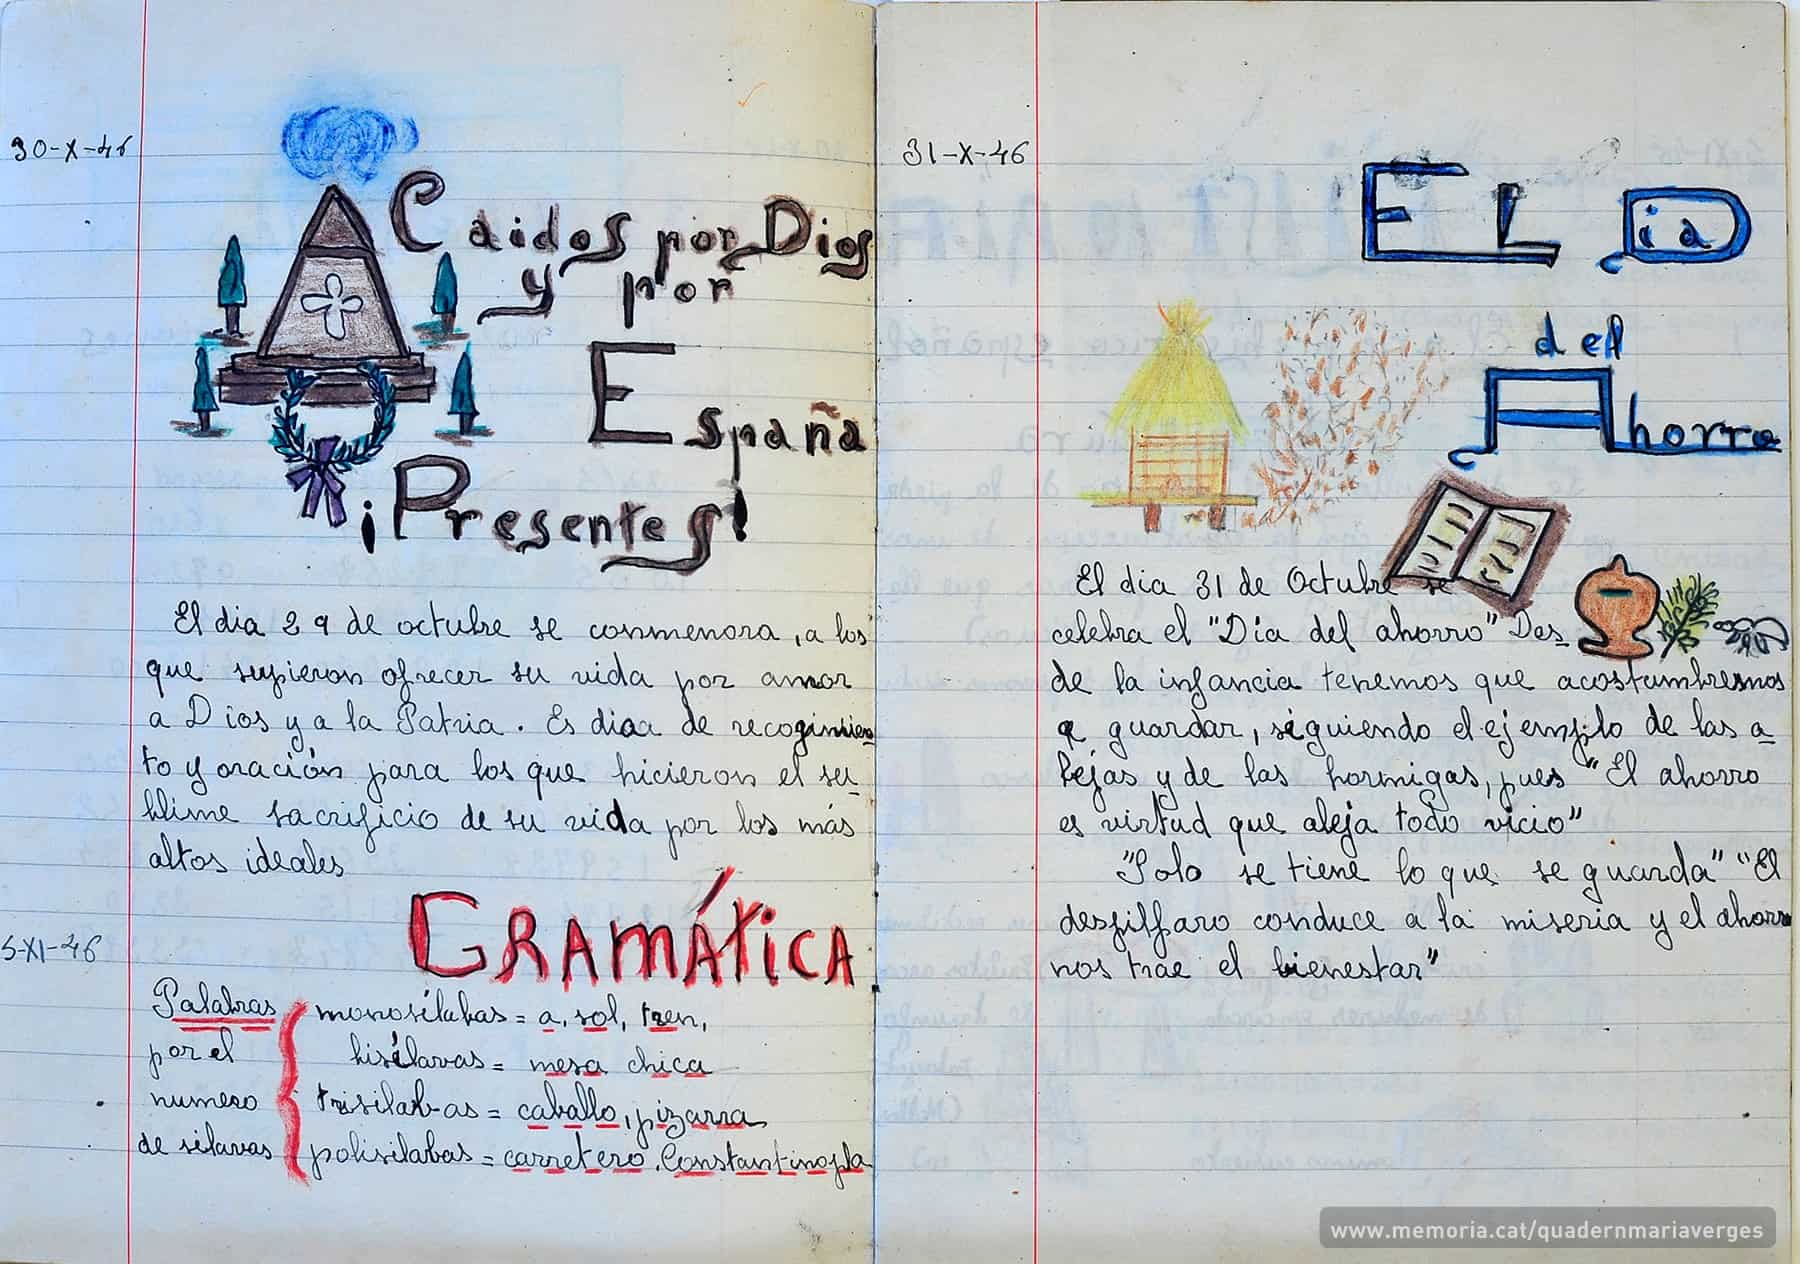 30-X-46
Caidos por Dios
y por
España
¡Presentes!
El dia 29 de octubre se conmenora, a los
que supieron ofrecer su vida por amor
a Dios y a la Patria. Es diaa de recogimien
to y oración para los que hicieron el su_
blime sacrificio de su vida por los más
altos ideales
5-XI-46
GRAMÁTICA
Palabras
por el
numero
de silavas
monosílabas = a, sol, tren,
bisílavas = mesa chica
trisilabas = caballo, pizarra
polisilabas = carretero, Constantinopla
31-X-46
EL Dia
del
Ahorro
El dia 31 de Octubre se
celebra el "Día del ahorro" Des_
de la infancia tenemos que acostumbresnos
a guardar, siguiendo el ejemplo de las a_
bejas y de las hormigas, pues "El ahorro
es virtud que aleja todo vicio"
"Solo se tiene lo que se guarda" "El
despilfaro conduce a la miseria y el ahorro
nos trae el bienestar"
www.memoria.cat/quadernmariaverges